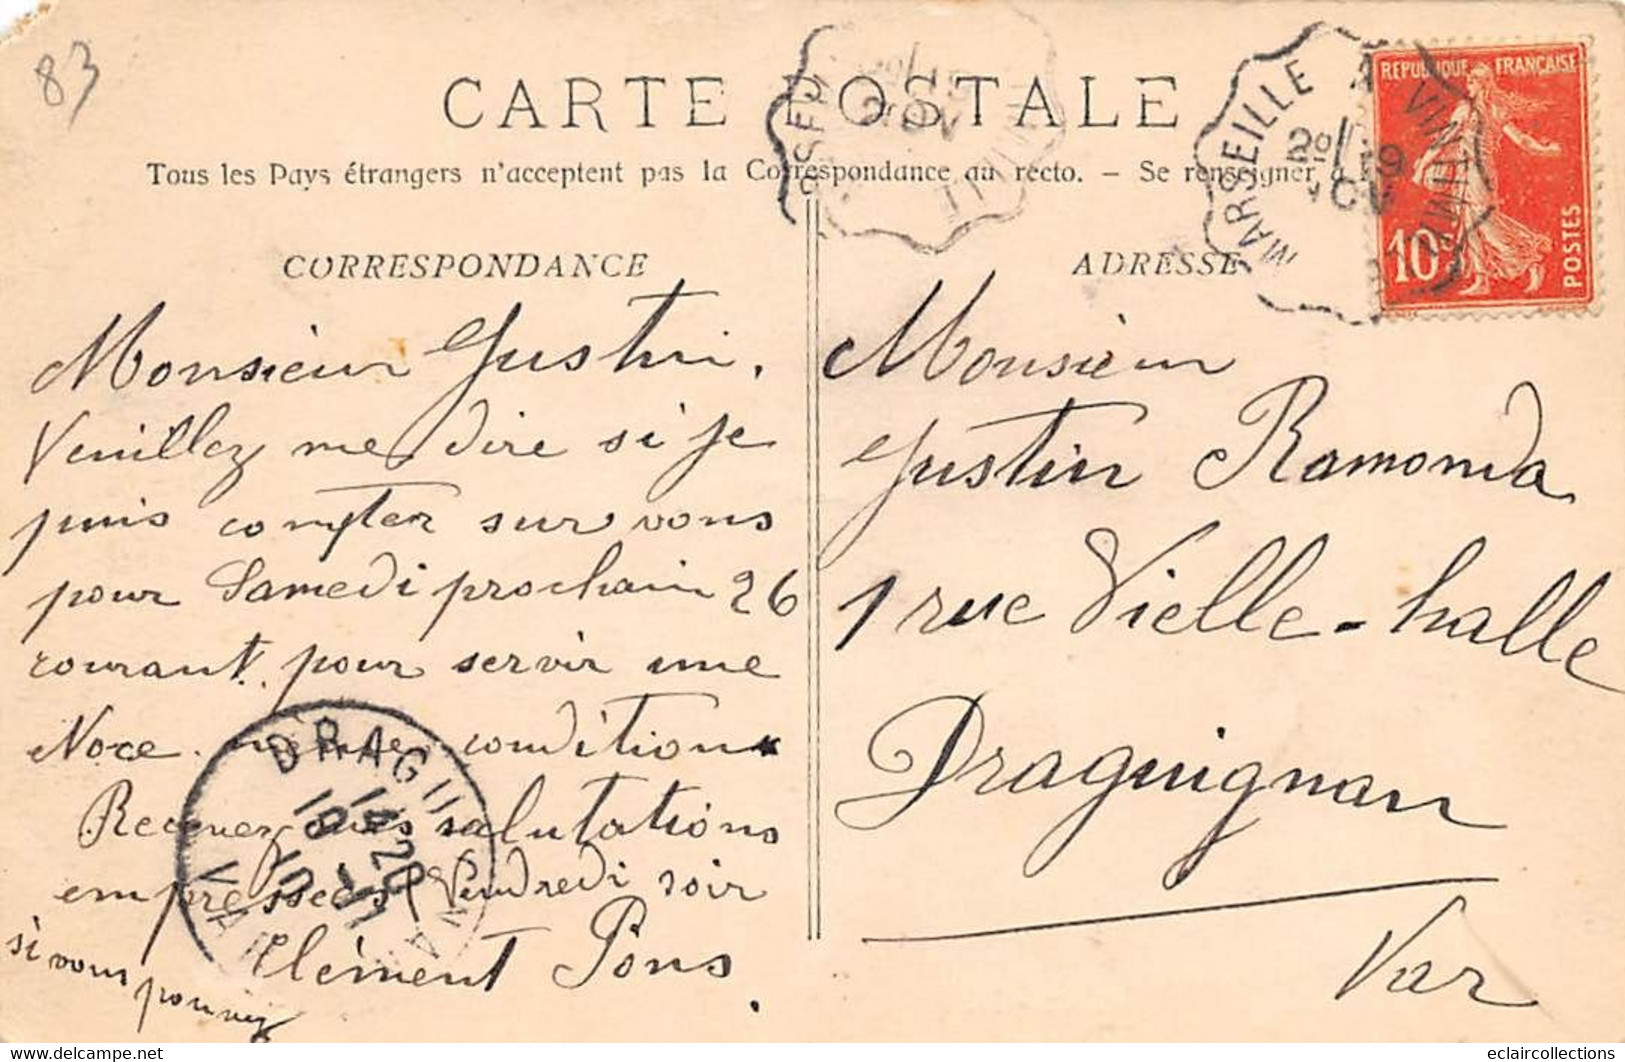 83
CARTE POSTALE
Tous les Pays étrangers n'acceptent pas la Correspondance au recto. - Se renseigner à
MARSEILLE À VINTIMILLE
19
NOV
REPUBLIQUE FRANÇAISE
10c
POSTES
CORRESPONDANCE
Monsieur Justin,
Veuillez me dire si je
puis compter sur vous
pour Samedi prochain 26
courant. pour servir une
Noce. même condition
Recevez mes salutations
empressées Vendredi soir
si vous pouvez
Clément Pons.
DRAGUIGNAN
VAR
14 20
19 - 11
10
ADRESSE
Monsieur
Justin Ramonda
1 rue Vielle-halle
Draguignan
Var
www.delcampe.net
eclaircollections